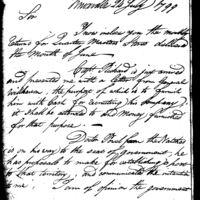 Knoxville 24 July 1799
Sir
I now inclose you the monthly
returns for Quarter Masters Stores delivered
the Month of June
Captn Richard is just arrived
and presented me with a letter from General
Wilkinson, the purpose of which is to furnish
him with Cash for recruiting his Company;
it shall be attended to and Money furnished
for that purpose.
Doctr from the Natchez
is on his way to the seat of government. he
has proposed to make for establishing a post
to that territory, and communicated the intention
to me; I am of opinion the government